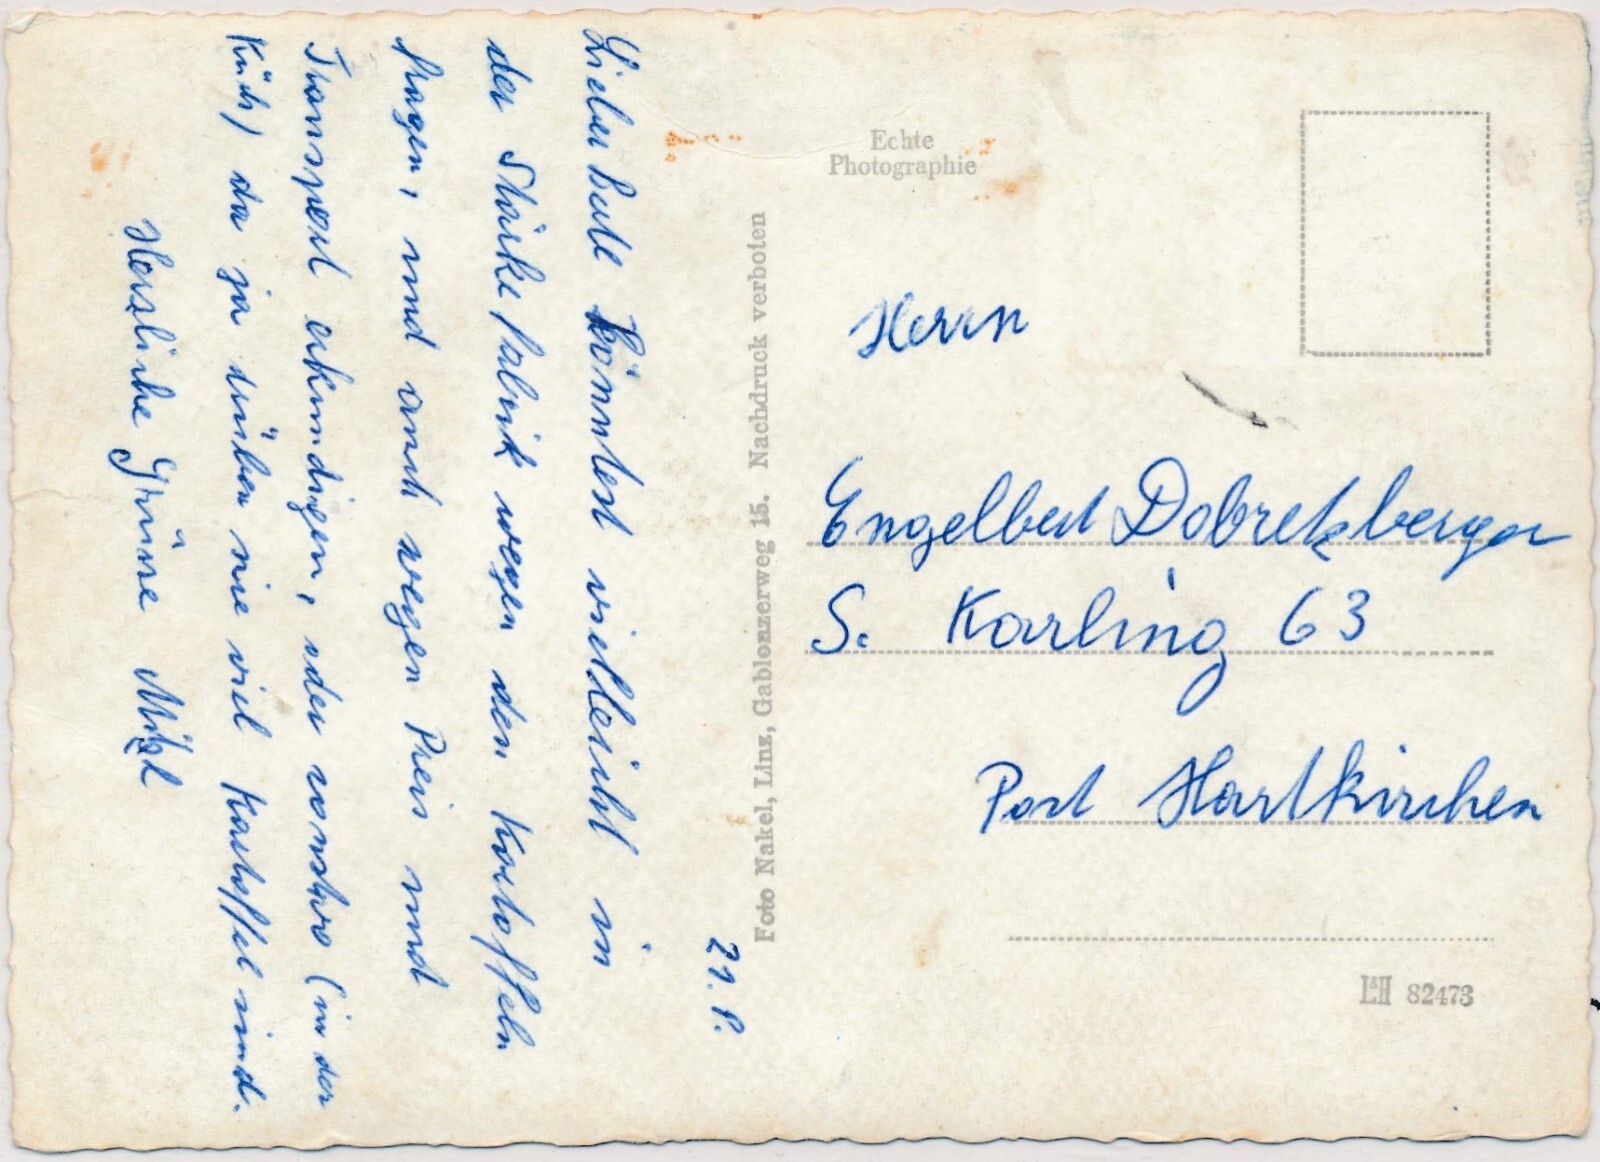 21. 8.
Lieber Bert Könntest vielleicht in
der Stärkefabrik wegen den Kartoffeln
fragen, und auch wegen Preis und
Transport erkundigen, oder sonstwo (in der
Küch) da ja drüben nie viel Kartoffel sind.
Herzliche Grüsse
Foto Nakel, Linz, Gablonzerweg 15. Nachdruck verboten
Echte
Photographie
Herrn
Engelbert Dobretzberger
S. Karling 63
Post Hartkirchen
L&H 82473